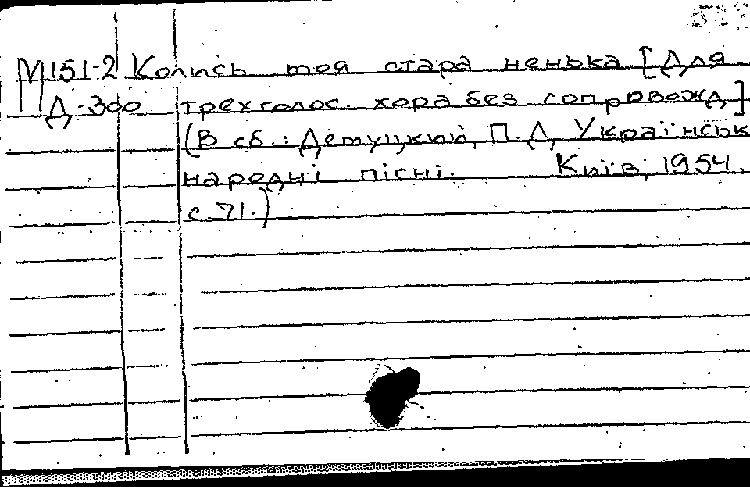 М151-2 Колись моя стара ненька [Для
Д-300 трехголос. хора без сопровожд.]
(В сб.: Демуцкий, П. Д. Українськ
народні пісні. Київ, 1954.
с. 71.)